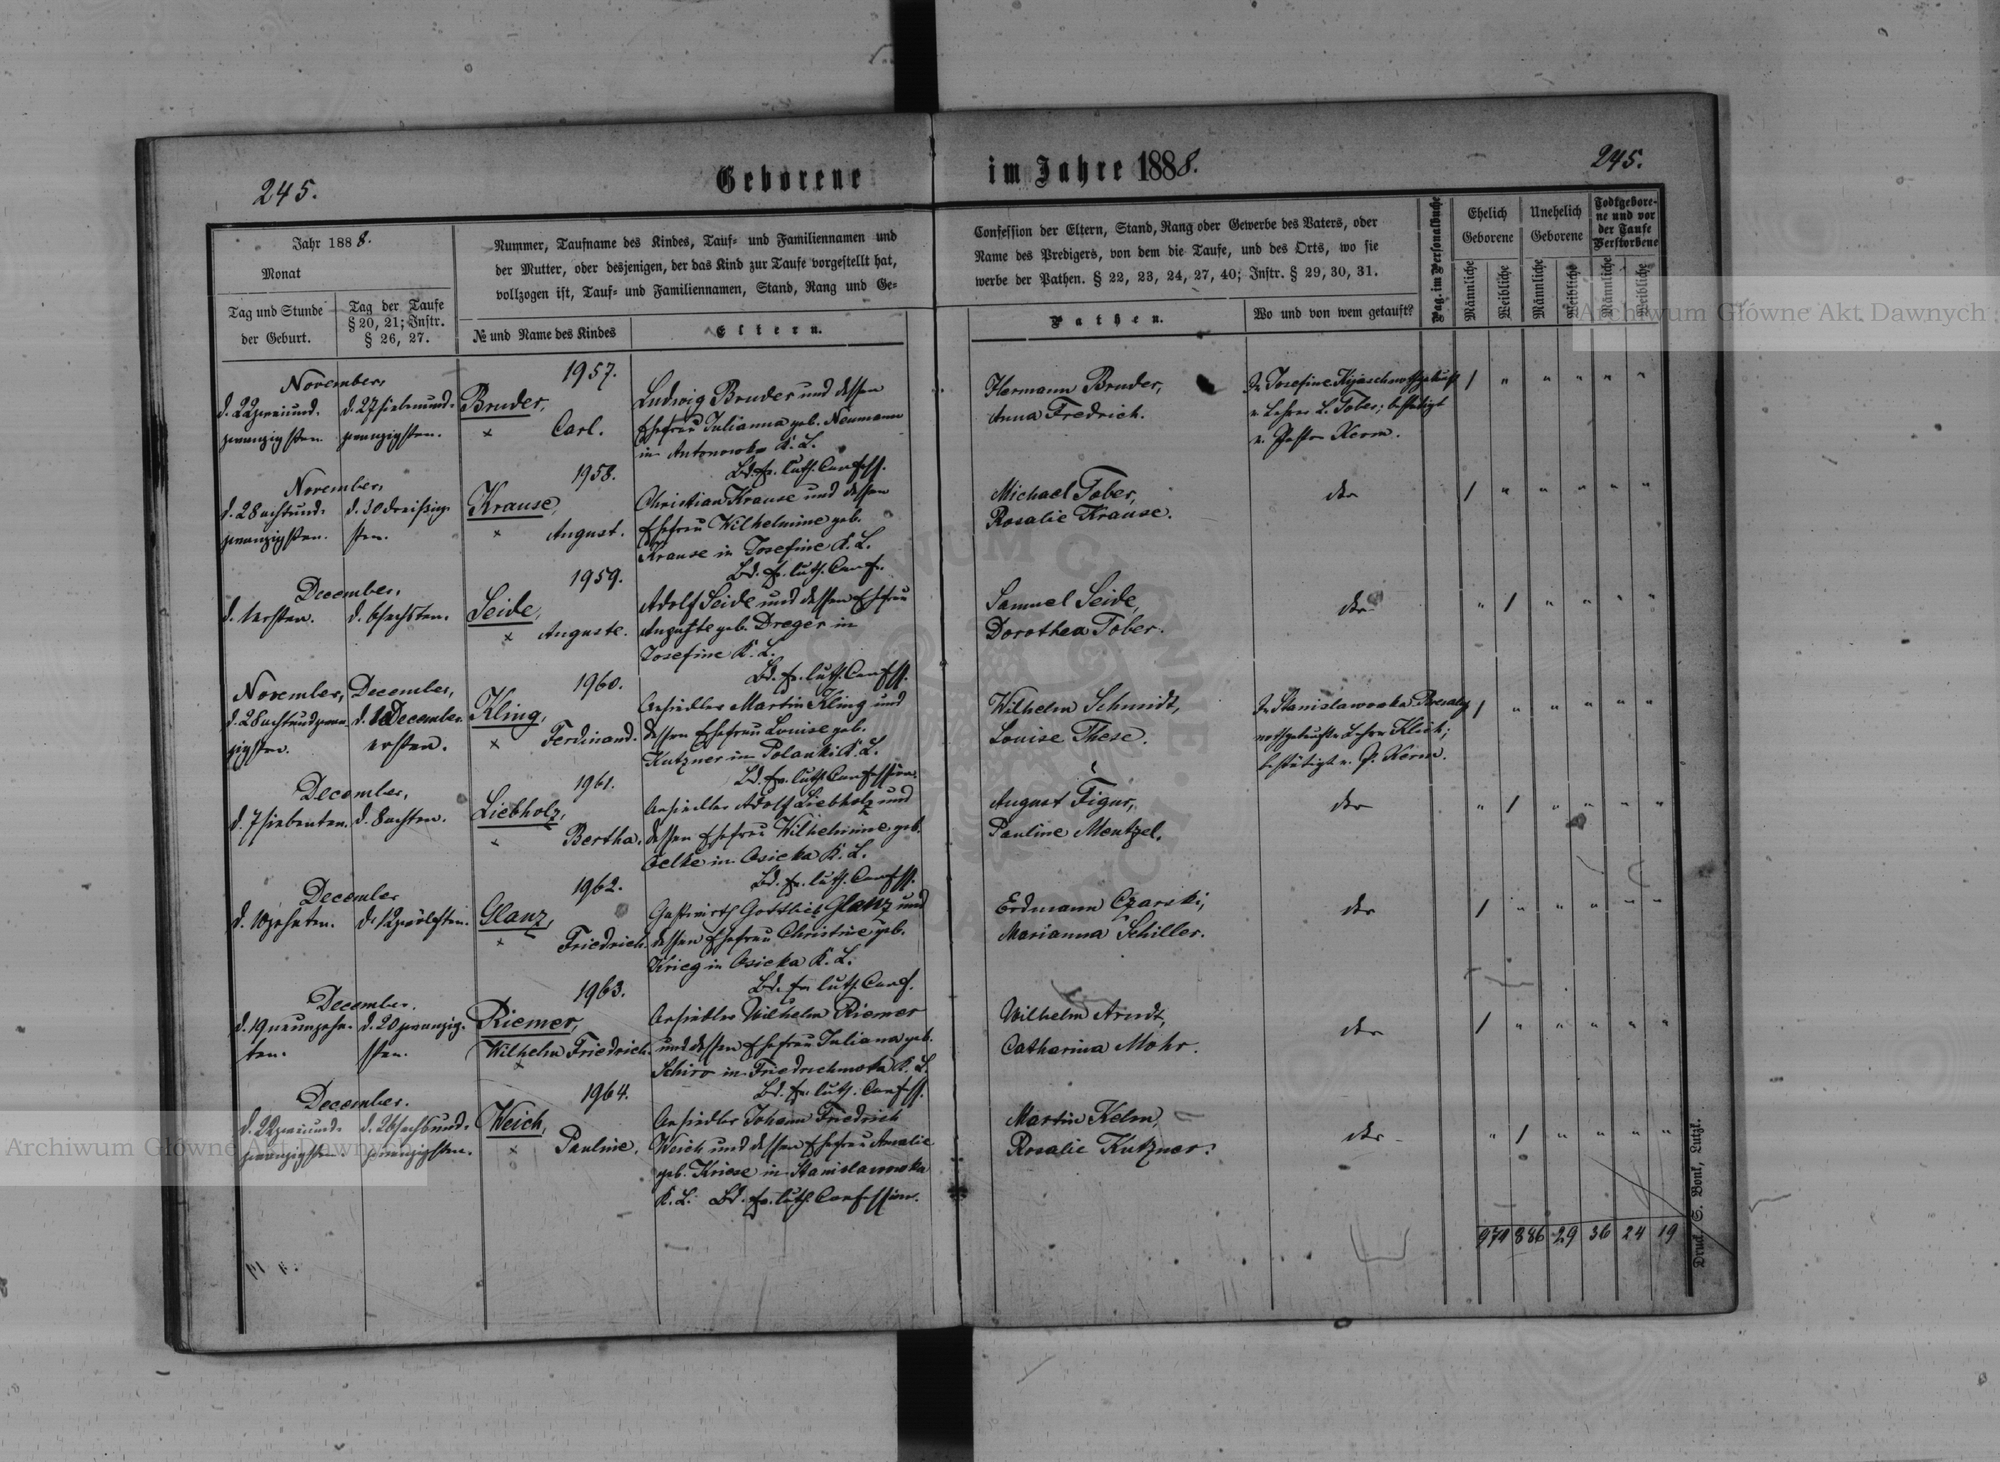 245.
Geborene
im Jahre 1888.
245.
Jahr 1888.
Monat
Tag und Stunde
der Geburt.
Tag der Taufe
§ 20, 21; Instr.
§ 26, 27.
Nummer, Taufname des Kindes, Tauf- und Familiennamen und
der Mutter, oder desjenigen, der das Kind zur Taufe vorgestellt hat,
vollzogen ist, Tauf- und Familiennamen, Stand, Rang und Ge-
№ und Name des Kindes
Eltern.
Confession der Eltern, Stand, Rang oder Gewerbe des Vaters, oder
Name des Predigers, von dem die Taufe, und des Orts, wo sie
werbe der Pathen. § 22, 23, 24, 27, 40; Instr. § 29, 30, 31.
Pathen.
Wo und von wem getauft?
Pag. im Personalbuche
Ehelich
Geborene
Unehelich
Geborene
Todtgebore-
ne und vor
der Taufe
Verstorbene
Männliche
Weibliche
Männliche
Weibliche
Männliche
Weibliche
November,
d. 22 zweiund-
zwanzigsten.
d. 27 siebenund-
zwanzigsten.
1957.
Bruder,
× Carl.
Ludwig Bruder und dessen
Ehefrau Julianna geb. Neumann
in Antonowka K. L.
Bd. ev. luth. Confess.
Hermann Bruder,
Anna Fredrich.
In Josefine
v. Lehrer L. Tober; bestätigt
v. Pastor Kerm.
November,
d. 28 achtund-
zwanzigsten.
d. 30 dreißig-
sten.
1958.
Krause,
× August.
Christian Krause und dessen
Ehefrau Wilhelmine geb.
Krause in Josefine K. L.
Bd. ev. luth. Conf.
Michael Tober,
Rosalie Krause.
dto
December,
d. 1 ersten.
d. 6 sechsten.
1959.
Seide,
× Auguste.
Adolf Seide und dessen Ehefrau
Auguste geb. Dreger in
Josefine K. L.
Bd. ev. luth. Confess.
Samuel Seide,
Dorothea Tober.
dto
November,
d. 28 achtundzwan-
zigsten.
December,
d. 1 December
ersten.
1960.
Kling,
× Ferdinand.
Ansiedler Martin Kling und
dessen Ehefrau Louise geb.
Kutzner in Polanki K. L.
Bd. ev. luth. Confession.
Wilhelm Schmidt,
Louise These.
In Stanislawowka
nothgetauft v. Lehrer Klick;
bestätigt v. P. Kerm.
December,
d. 7 siebenten.
d. 8 achten.
1961.
Liebholz,
× Bertha.
Ansiedler Adolf Liebholz und
dessen Ehefrau Wilhelmine geb.
Oelke in Osieka K. L.
Bd. ev. luth. Confess.
August Figur,
Pauline Mentzel.
dto
December
d. 10 zehnten.
d. 12 zwölften.
1962.
Glanz,
× Friedrich.
Gastwirth Gottlieb Glanz und
dessen Ehefrau Christine geb.
Krieg in Osieka K. L.
Bd. ev. luth. Conf.
Erdmann Czarski,
Marianna Schiller.
dto
December.
d. 19 neunzehn-
ten.
d. 20 zwanzig-
sten.
1963.
Riemer,
Wilhelm Friedrich.
×
Ansiedler Wilhelm Riemer
und dessen Ehefrau Juliana geb.
Schirr in Friedrichowka K. L.
Bd. ev. luth. Confess.
Wilhelm Arndt,
Catharina Mohr.
dto
December.
d. 22 zweiund-
zwanzigsten.
d. 26 sechsund-
zwanzigsten.
1964.
Weich,
× Pauline.
Ansiedler Johann Friedrich
Weich und dessen Ehefrau Amalie
geb. Kriese in Stanislawowka
K. L. Bd. ev. luth. Confession.
Martin Kelm,
Rosalie Kutzner.
dto
974 886 29 36 24 19
Druck S. Bonk, Lutzk.
Archiwum Główne Akt Dawnych
Archiwum Główne Akt Dawnych